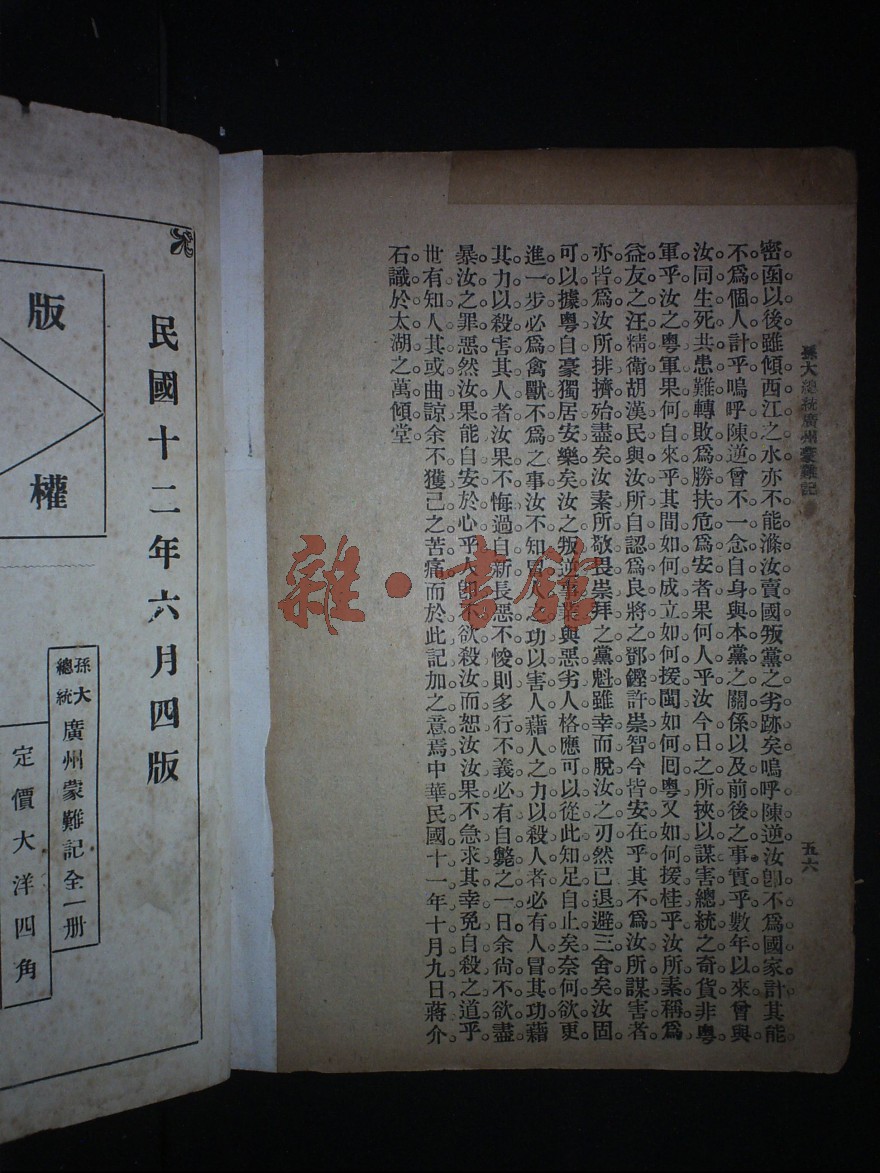 孫大總統廣州蒙難記
五六
密函以後雖傾西江之水亦不能滌汝賣國叛黨之劣跡矣嗚呼陳逆汝卽不爲國家計其能
不爲個人計乎嗚呼陳逆曾不一念自身與本黨之關係以及前後之事實乎數年以來曾與
汝同生死共患難轉敗爲勝扶危爲安者果何人乎汝今日之所挾以謀害總統之奇貨非粵
軍乎汝之粵軍果何自來乎其間如何成立如何援閩如何囘粵又如何援桂乎汝所素稱爲
益友之汪精衛胡漢民與汝所自認爲良將之鄧鏗許崇智今皆安在乎其不爲汝所謀害者
亦皆爲汝所排擠殆盡矣汝素所敬畏崇拜之黨魁雖幸而脫汝之刃然已退避三舍矣汝固
可以據粵自豪獨居安樂矣汝之叛逆事業與惡劣人格應可以從此知足自止矣奈何欲更
進一步必爲禽獸不爲之事汝不知冒人之功以害人藉人之力以殺人者必有人冒其功藉
其力以殺害其人者汝果不悔過自新長惡不悛則多行不義必有自斃之一日余尙不欲盡
暴汝之罪惡然汝果能自安於心乎人卽不欲殺汝而恕汝汝果不急求其幸免自殺之道乎
世有知人其或曲諒余不獲己之苦痛而於此記加之意焉中華民國十一年十月九日蔣介
石識於太湖之萬傾堂
民國十二年六月四版
孫大總統廣州蒙難記全一册
版權
定價大洋四角
雜·書館